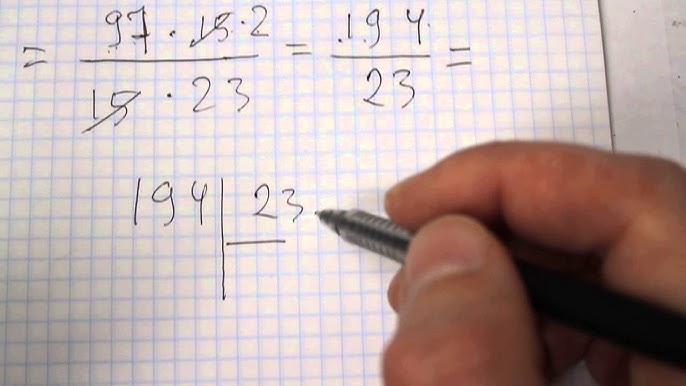 = 97 · 15 · 2 / 15 · 23 = 194 / 23 =
194 | 23